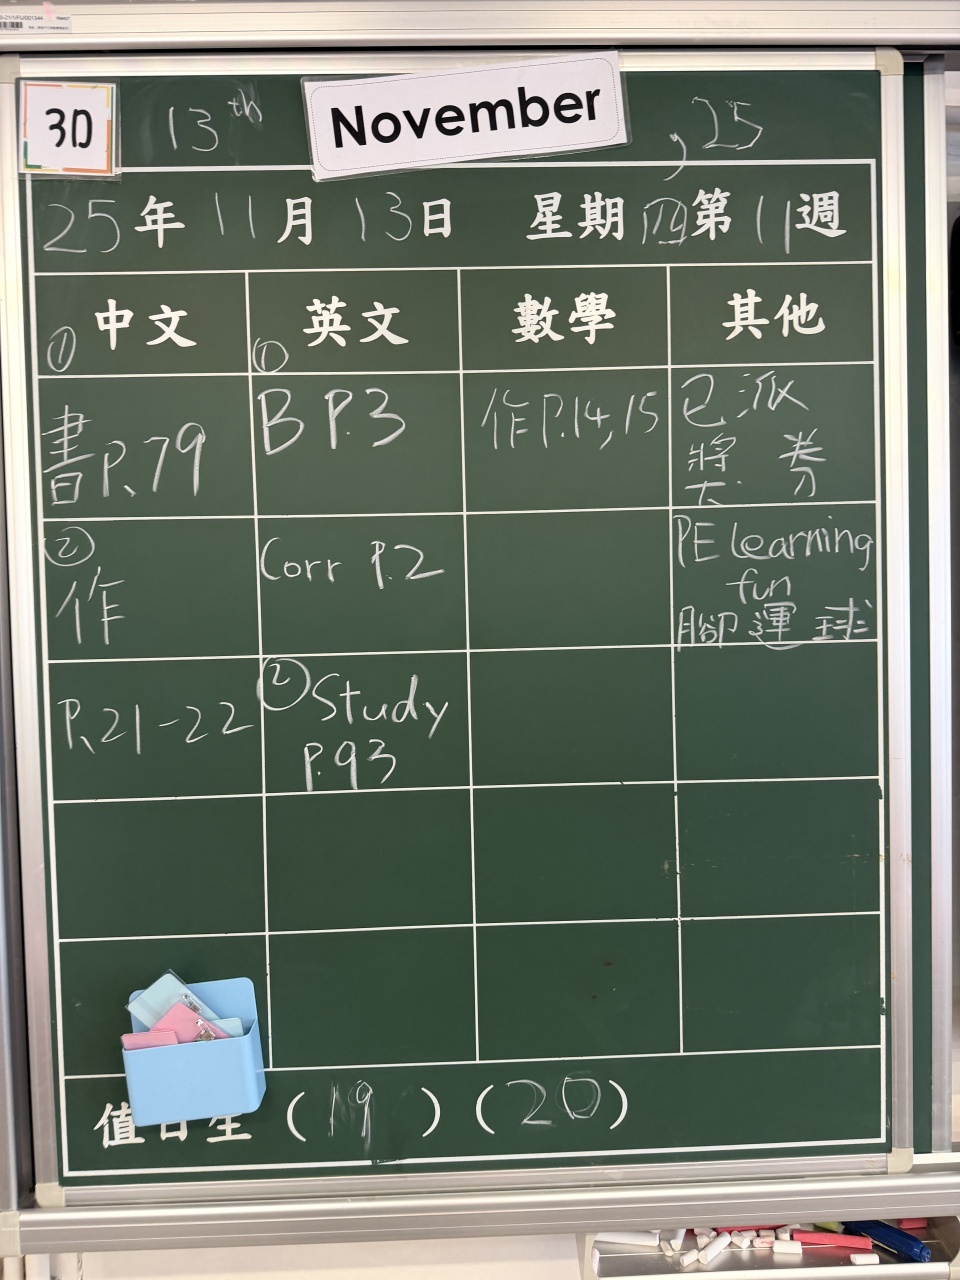 3D
13th November , 25
25年11月13日 星期四第11週
中文 英文 數學 其他
①
書P.79
②
作
P.21-22
①
B P.3
Corr P.2
② Study
P.93
作P.14,15
已派
獎券
PE learning
fun
腳運球
值日生 (19) (20)